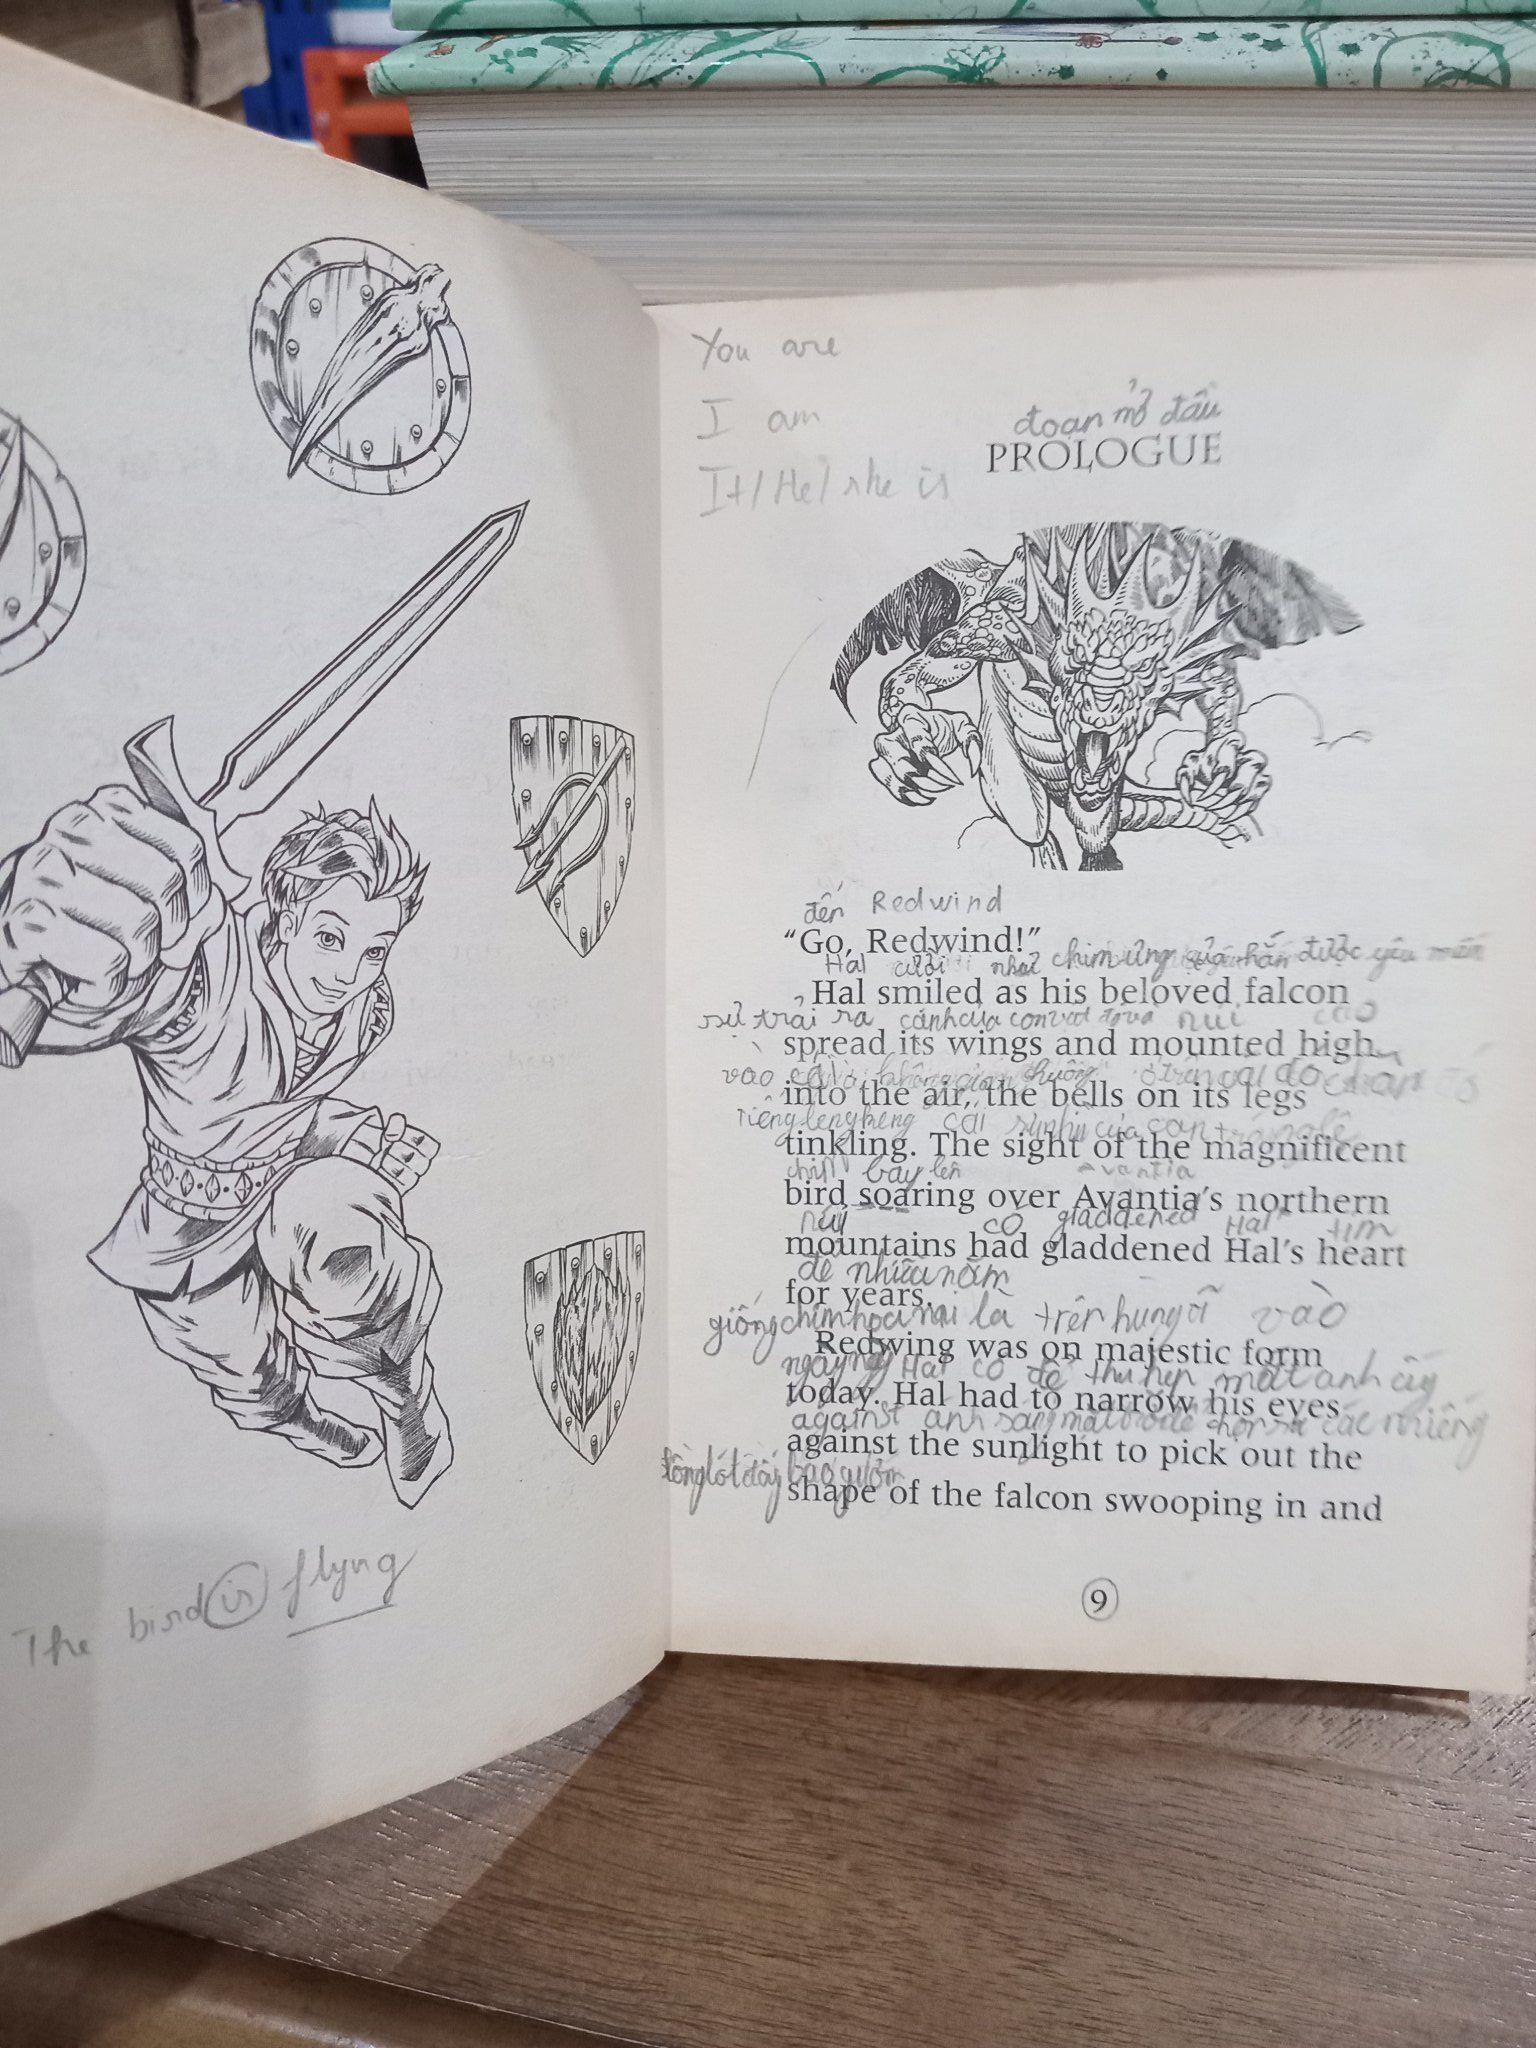 The bird is flyng
You are
I am
It/He/she is
đoạn mở đầu
PROLOGUE
đến Redwind
“Go, Redwind!”
Hal cười như chim ưng của hắn được yêu mến
Hal smiled as his beloved falcon
sự trải ra cánh của con vật đó và núi cao
spread its wings and mounted high
vào
into the air, the bells on its legs
tiếng leng keng cái
tinkling. The sight of the magnificent
chim bay lên Avantia
bird soaring over Avantia’s northern
núi có gladdened Hal tim
mountains had gladdened Hal’s heart
để những năm
for years.
giống chim là trên hùng vĩ vào
Redwing was on majestic form
ngày nay Hal có để thu hẹp mắt anh ấy
today. Hal had to narrow his eyes
against ánh sáng mặt trời để chọn ra các miếng
against the sunlight to pick out the
shape of the falcon swooping in and
9